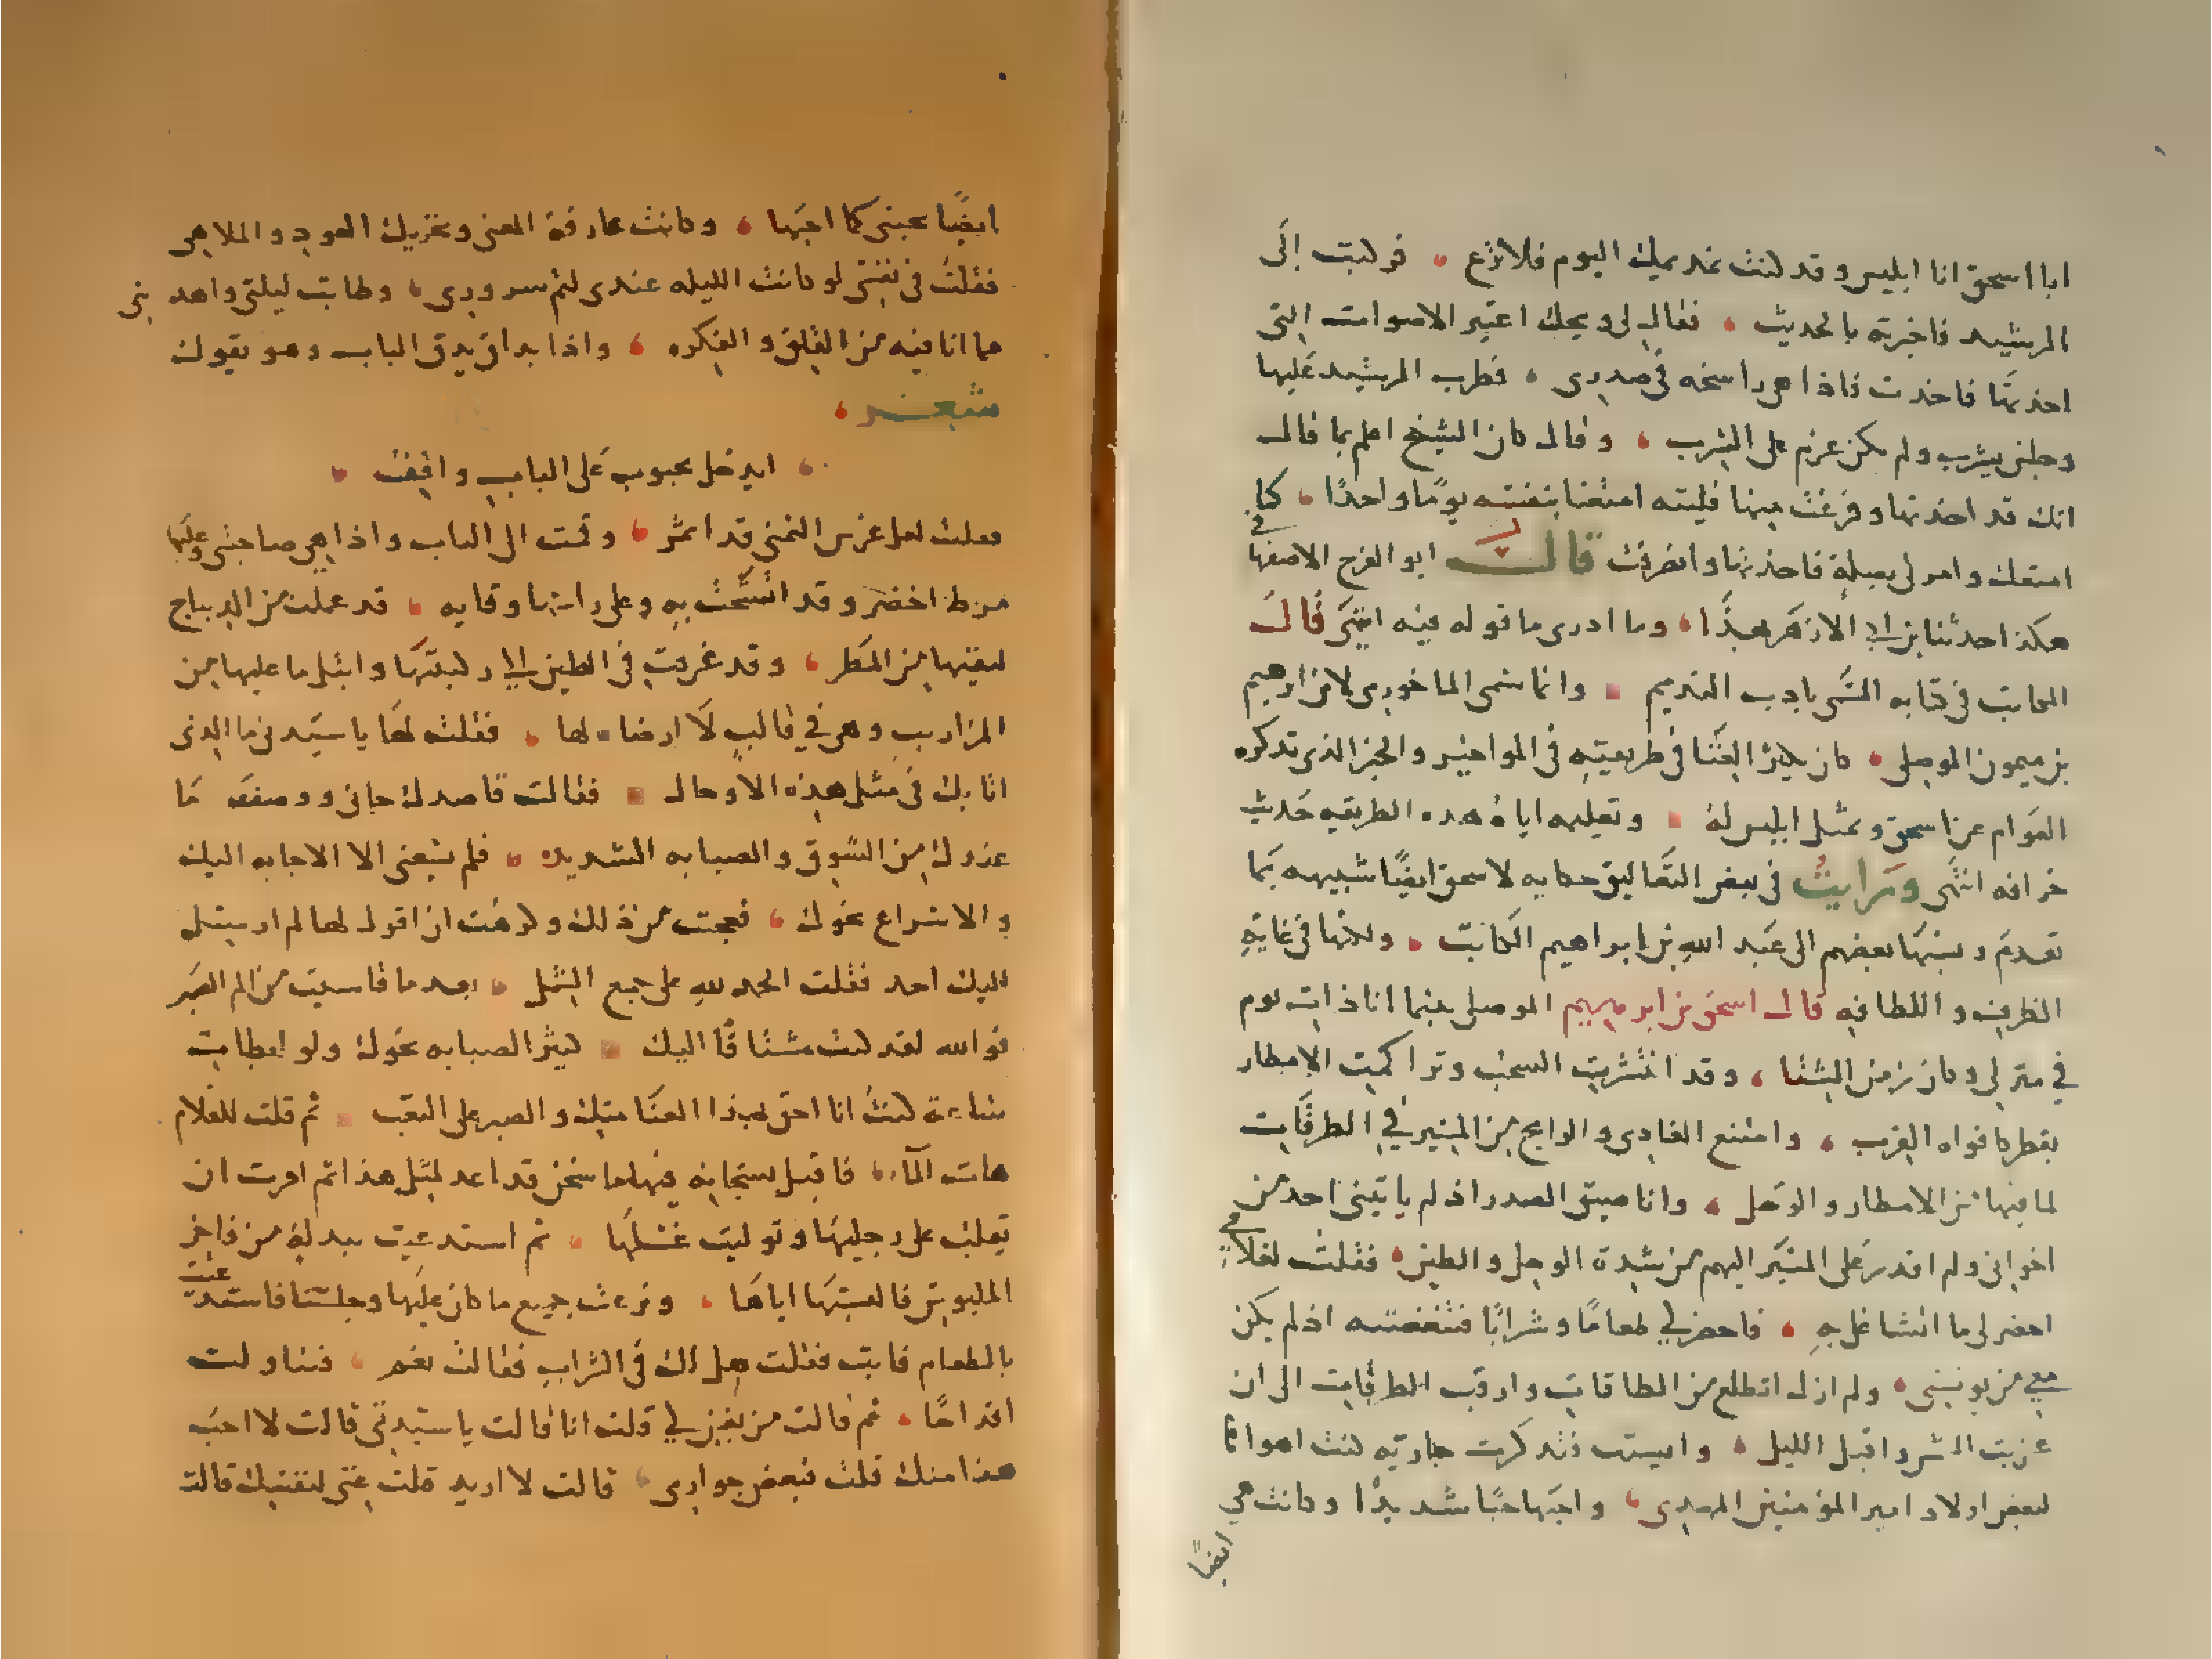 ابا اسحق انا ابليس وقد كنت نديمك اليوم فلا تزع فركبت الى
الرشيد فاخبرته بالحديث فقال لى ويحك اعتبر الاصوات التى
اخذتها فاخذت فاذا هى راسخه فى صدرى فطرب الرشيد عليها
وجلس يشرب ولم يكن عزم على الشرب وقال كان الشيخ اعلم بما قال
انك قد اخذتها وفرغت منها فليته امتعنا بنفسه يومًا واحدًا كما
امتعك وامر لى بصلة فاخذتها وانصرفت قالت ابو الفرج الاصفهانى
هكذا حدثنا بن ابى الازهر بهذا وما ادرى ما قوله فيه انتهى قال
الكاتب فى كتابه المسمى بادب النديم وانما سمى الماخورى لان ابرهيم
بن ميمون الموصلى كان يكثر الغنا فى طريقته فى المواخير والخبر الذى تذكره
العوام عن اسحق وتمثل ابليس له وتعليمه اياه هذه الطريقه حديث
خرافه انتهى ورايت فى بعض التعاليق حكايه لاسحق ايضًا شبيهه بما
تقدم ونسبها بعضهم الى عبد الله بن ابراهيم الكاتب ولكنها فى غاية
الظريف واللطافه قال اسحق بن ابرهيم الموصلى بينما انا ذات يوم
فى منزلى وكان زمن الشتا وقد انتشرت السحب وتراكمت الامطار
بقطر كافواه القرب وامتنع الغادى والرايح من المسير فى الطرقات
لما فيها من الامطار والوحل وانا ضيق الصدر اذ لم ياتينى احد من
اخوانى ولم اقدر على المسير اليهم من شدة الوحل والطين فقلت لغلامى
احضر لى ما اتشاغل به فاحضر لى طعامًا وشرابًا فتنغصته اذ لم يكن
معى من يونسنى ولم ازل اتطلع من الطاقات وارقب الطرقات الى ان
غربت الشمس واقبل الليل وايست فتذكرت جارية كنت اهواها
لبعض اولاد امير المؤمنين المهدى واحبها حبًا شديدًا وكانت هى
ايضًا
ايضًا تحبنى كما احبها وكانت عارفة المغنى وتحريك العود والملاهى
فقلت فى نفسى لو كانت الليله عندى لتم سرورى وطابت ليلتى واهدتنى
مما انا فيه من القلق والفكره واذا بداق يدق الباب وهو يقول
شعر
ايدخل محبوب على الباب واقف
فقلت لعل غرس التمنى قد اثمر وقمت الى الباب واذا هى صاحبتى وعليها
مرط اخضر وقد اتشحت به وعلى راسها وقايه قد عملت من الديباج
لتقيها من المطر وقد غرقت فى الطين الى ركبتها وابتل ما عليها من
المزاريب وهى فى قالب لا ارضاه لها فقلت لها يا سيدتى ما الذى
اتا بك فى مثل هذه الاوحال فقالت قاصدك جانى ووصف ما
عندك من الشوق والصبابه الشديده فلم يسعنى الا الاجابه اليك
والاسراع نحوك فعجبت من ذلك وكرهت ان اقول لها لم ارسل
اليك احد فقلت الحمد لله على جمع الشمل بعد ما قاسيت من الم الصبر
فوالله لقد كنت مشتاقًا اليك كثير الصبابه نحوك ولو ابطات
ساعة كنت انا احق بهذا العنا منك والصبر على التعب ثم قلت للغلام
هات الماء فاقبل بسخانه فيها ما سخن قد اعد لمثل هذا ثم امرت ان
تقلب على رجليها وتوليت غسلها ثم استدعيت ببدلة من فاخر
الملبوس فالبستها اياها ونزعت جميع ما كان عليها وجلسنا فاستدعيت
بالطعام فابت فقلت هل لك فى الشراب فقالت نعم فتناولت
اقداحًا ثم قالت من يغنى لى قلت انا قالت يا سيدتى قالت لا احب
هذا منك قلت فبعض جوارى قالت لا اريد قلت غنى لنفسك قالت